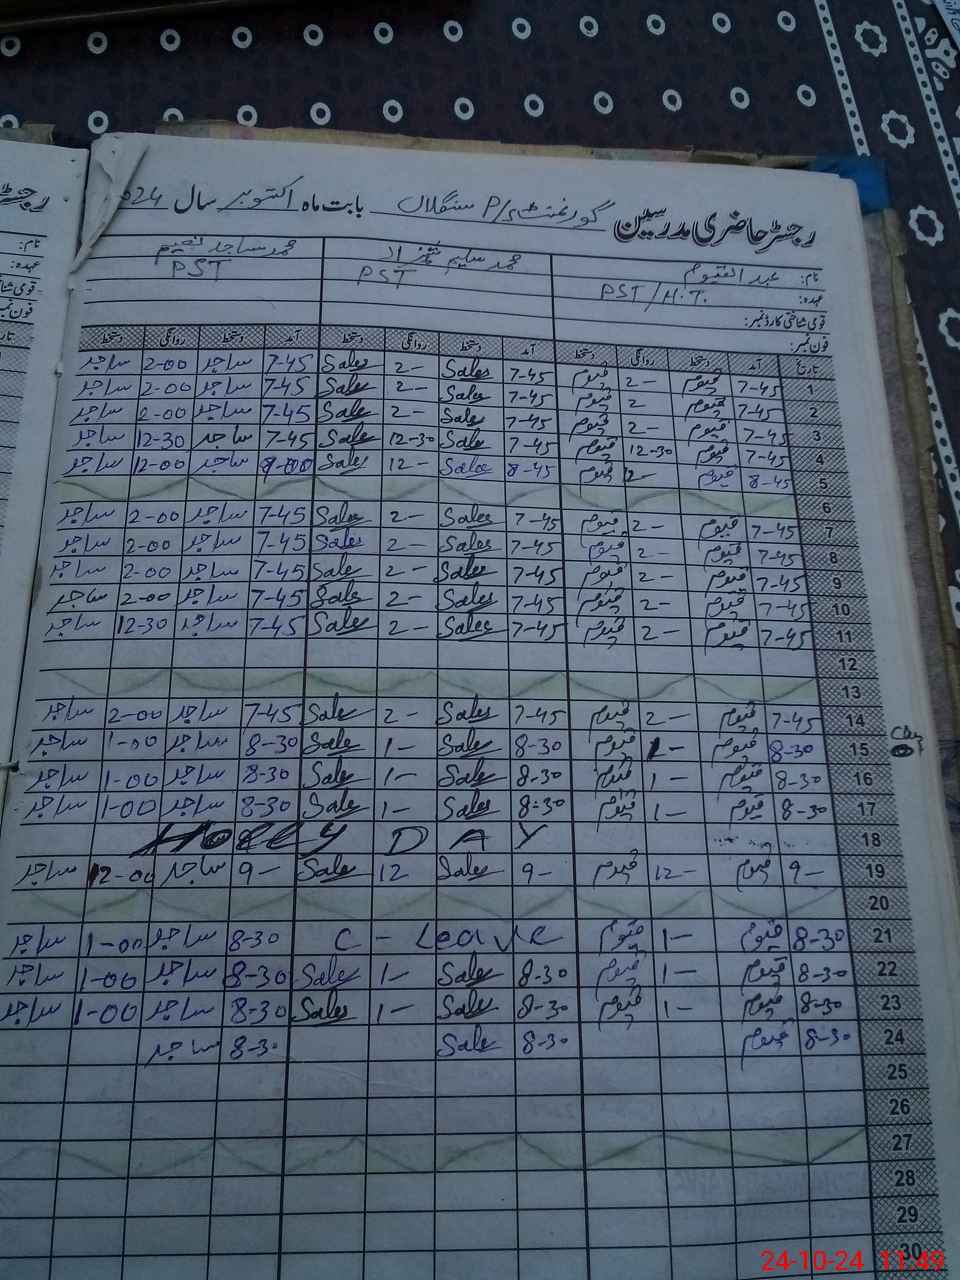 رجسٹر حاضری مدرسین گورنمنٹ P/S سنگلاں بابت ماہ اکتوبر سال 24
نام: عبد القیوم محمد سلیم محمد ساجد نعیم
عہدہ: PST/H.T. PST PST
قومی شناختی کارڈ نمبر:
فون نمبر:
تاریخ آمد دستخط روانگی دستخط آمد دستخط روانگی دستخط آمد دستخط روانگی دستخط
1 7-45 قیوم 2- قیوم 7-45 Sales 2- Sales 7-45 ساجد 2-00 ساجد
2 7-45 قیوم 2 قیوم 7-45 Sale 2- Sale 7-45 ساجد 2-00 ساجد
3 7-45 قیوم 2- قیوم 7-45 Sale 2- Sale 7-45 ساجد 2-00 ساجد
4 7-45 قیوم 12-30 قیوم 7-45 Sale 12-30 Sale 7-45 ساجد 12-30 ساجد
5 8-45 قیوم قیوم 8-45 Sale 12- Sale ساجد 12-00 ساجد
6
7 7-45 قیوم 2- قیوم 7-45 Sales 2- Sales 7-45 ساجد 2-00 ساجد
8 7-45 قیوم 2- قیوم 7-45 Sales 2- Sale 7-45 ساجد 2-00 ساجد
9 7-45 قیوم 2- قیوم 7-45 Sale 2- Sale 7-45 ساجد 2-00 ساجد
10 7-45 قیوم 2- قیوم 7-45 Sales 2- Sale 7-45 ساجد 2-00 ساجد
11 7-45 قیوم 2- قیوم 7-45 Sales 2- Sale 7-45 ساجد 12-30 ساجد
12
13
14 7-45 قیوم 2- قیوم 7-45 Sales 2- Sale 7-45 ساجد 2-00 ساجد
15 8-30 قیوم 1- قیوم 8-30 Sale 1- Sale 8-30 ساجد 1-00 ساجد
16 8-30 قیوم 1- قیوم 8-30 Sale 1- Sale 8-30 ساجد 1-00 ساجد
17 8-30 قیوم 1- قیوم 8-30 Sales 1- Sale 8-30 ساجد 1-00 ساجد
18 Holly DAY
19 9- قیوم 12- قیوم 9- Sale 12 Sale 9- ساجد 12-00 ساجد
20
21 8-30 قیوم 1- قیوم C - Leave 8-30 ساجد 1-00 ساجد
22 8-30 قیوم 1- قیوم 8-30 Sale 1- Sale 8-30 ساجد 1-00 ساجد
23 8-30 قیوم 1- قیوم 8-30 Sale 1- Sales 8-30 ساجد 1-00 ساجد
24 8-30 قیوم 8-30 Sale 8-30 ساجد
25
26
27
28
29
30
24-10-24 11:49